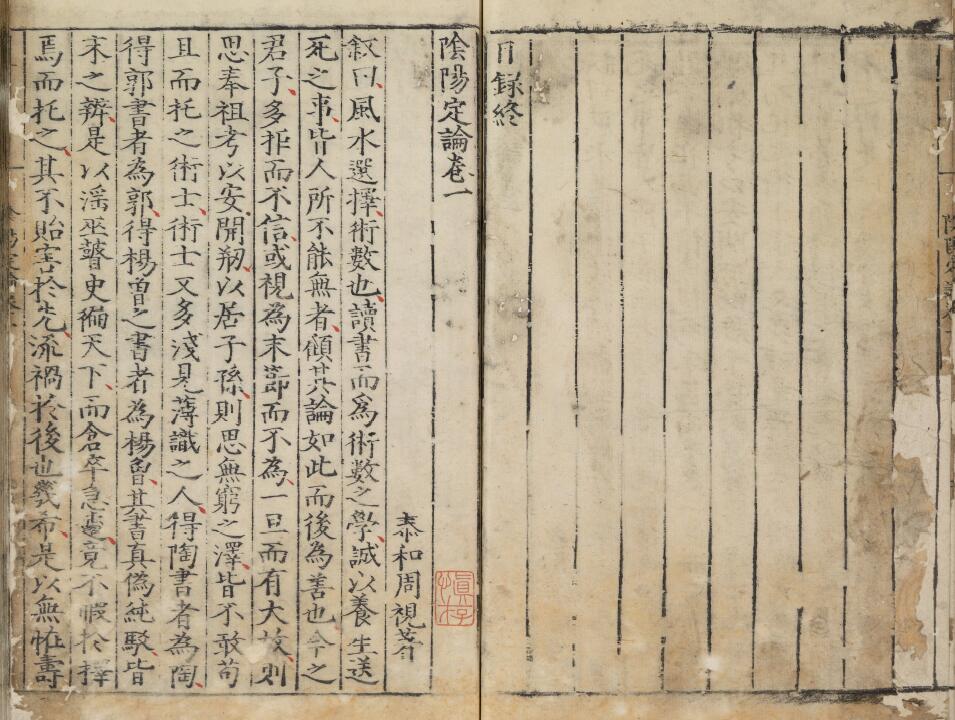 目録終
陰陽定論卷一
泰和周視著
叙曰風水選擇術數也讀書而為術數之學誠以養生送
死之事皆人所不能無者顧其論如此而後為善也今之
君子多拒而不信或視為末節而不為一旦而有大故則
思奉祖考以安開剏以居子孫則思無窮之澤皆不敢苟
且而托之術士術士又多淺見薄識之人得陶書者為陶
得郭書者為郭得楊曽之書者為楊曽其書真偽純駁皆
未之辨是以滛巫瞽史徧天下而倉卒急遽竟不暇於擇
焉而托之其不貽害於先流禍於後也幾希是以無恠壽